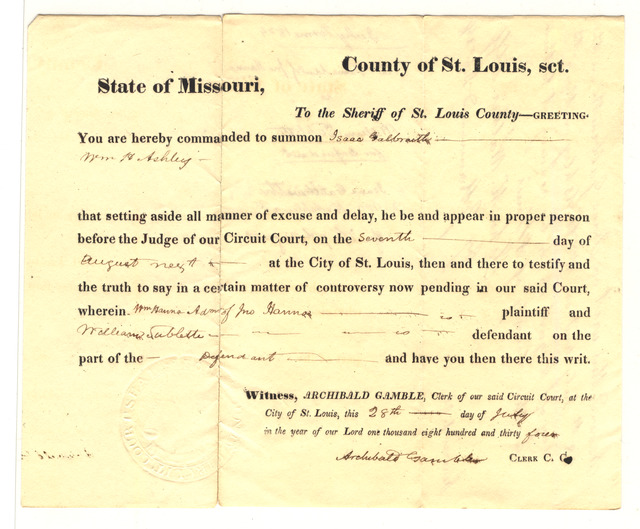 County of St. Louis, sct.
State of Missouri,
To the Sheriff of St. Louis County—GREETING.
You are hereby commanded to summon Isaac Galbraith
Wm H Ashley
that setting aside all manner of excuse and delay, he be and appear in proper person
before the Judge of our Circuit Court, on the Seventh day of
August next at the City of St. Louis, then and there to testify and
the truth to say in a certain matter of controversy now pending in our said Court,
wherein Wm Hanna Admr of Jno Hanna is plaintiff and
William Sublette is defendant on the
part of the Defendant and have you then there this writ.
Witness, ARCHIBALD GAMBLE, Clerk of our said Circuit Court, at the
City of St. Louis, this 28th day of July
in the year of our Lord one thousand eight hundred and thirty four
Archibald Gamble CLERK C. C.